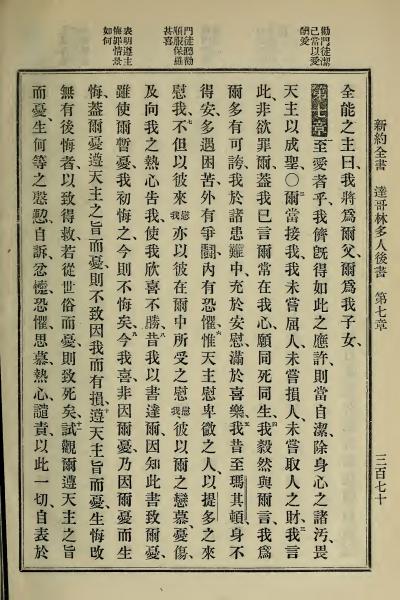 新約全書 達哥林多人後書 第七章 三百七十
勸門徒潔
己當以愛
酬愛
門徒聽勸
順服保羅
甚喜
表明遵主
悔罪情景
如何
全能之主曰、我將爲爾父、爾爲我子女、
第七章 至愛者乎、我儕旣得如此之應許、則當自潔、除身心之諸汚、畏
天主以成聖、〇二爾當接我、我未嘗屈人、未嘗損人、未嘗取人之財、三我言
此非欲罪爾、蓋我已言爾常在我心、願同死同生、四我毅然與爾言、我爲
爾多有可誇、我於諸患難中、充於安慰、滿於喜樂、五我昔至瑪其頓、身不
得安、多遇困苦、外有爭鬭、內有恐懼、六惟天主慰卑微之人、以提多之來
慰我、七不但以彼來慰我、亦以彼在爾中所受之慰慰我、彼以爾之戀慕、憂傷、
及向我之熱心告我、使我欣喜不勝、八昔我以書達爾、因知此書致爾憂、
雖使爾暫憂、我初悔之、今則不悔矣、九今我喜、非因爾憂、乃因爾憂而生
悔、蓋爾憂遵天主之旨而憂、則不致因我而有損、十遵天主旨而憂、生悔改
無有後悔者、以致得救、若從世俗而憂、則致死矣、十一試觀爾遵天主之旨
而憂、生何等之慇懃、自訴、忿懥、恐懼、思慕、熱心、譴責、以此一切、自表於